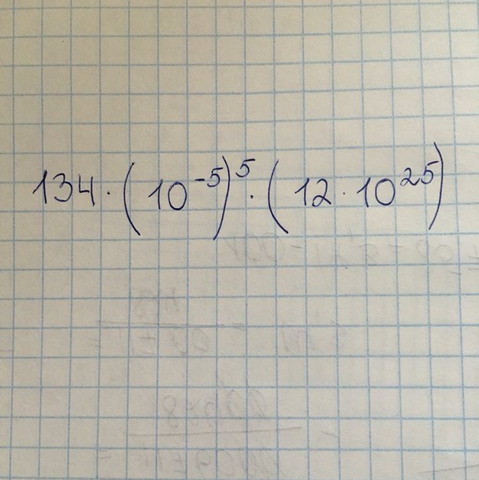 134 · (10⁻⁵)⁵ · (12 · 10²⁵)